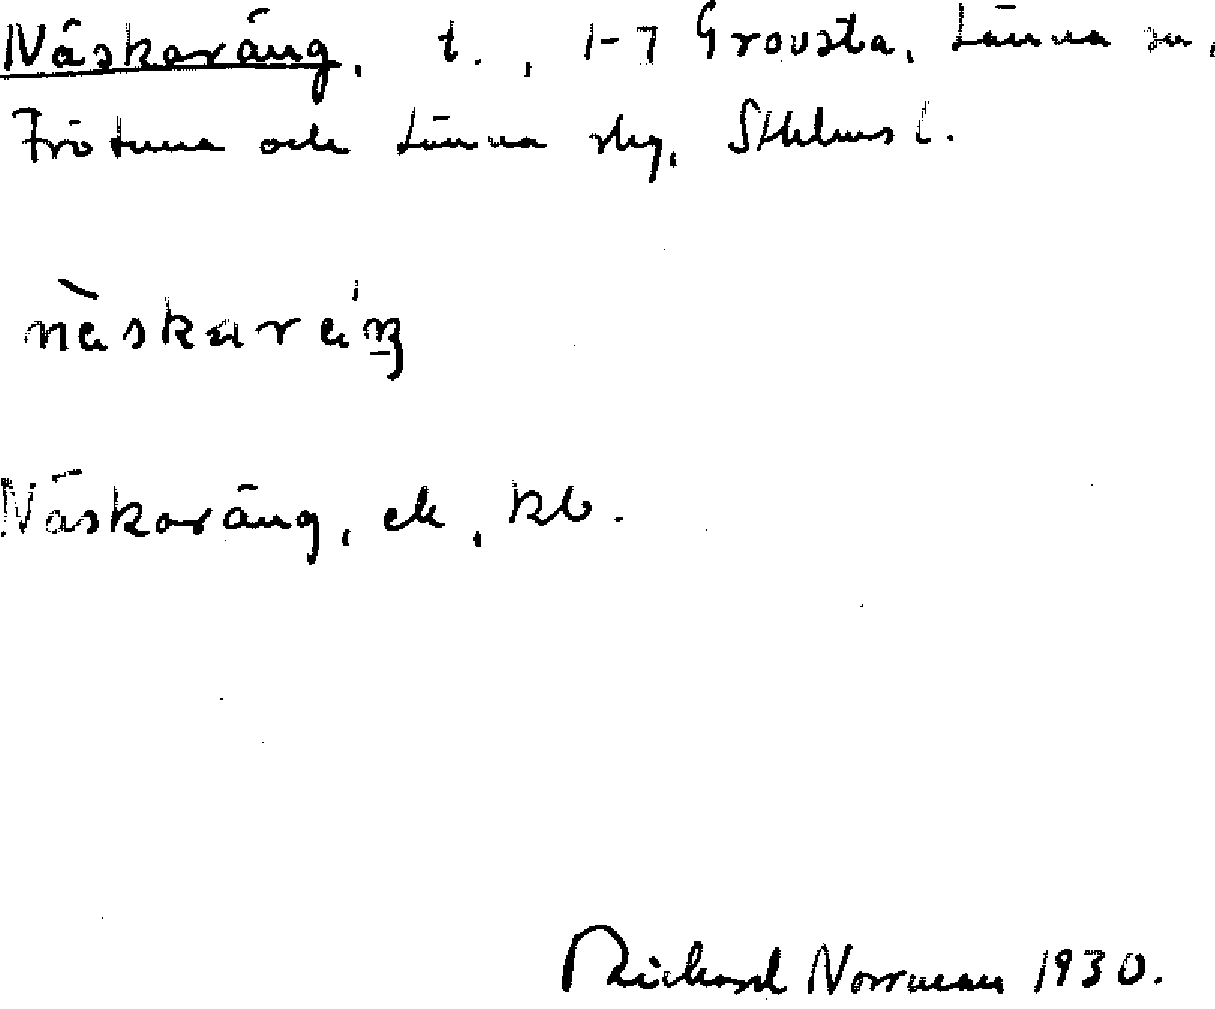 Näskaräng, t., 1-7 Grovsta, Länna sn,
Frötuna och Länna skg, Sthlms l.
nèskaráŋ
Näskaräng, ek, kb.
Richard Norrman 1930.